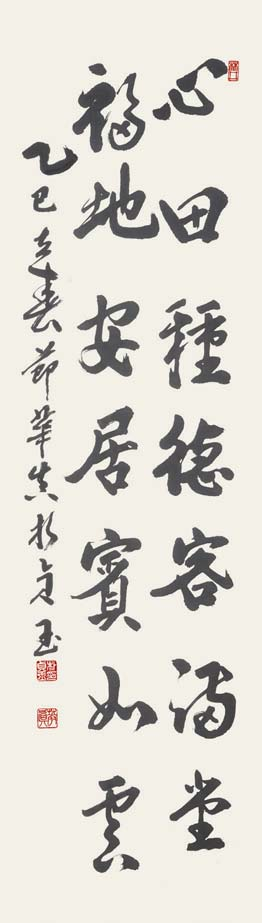 心田種德客滿堂
福地安居賓如雲
乙巳立春節華真於貞玉